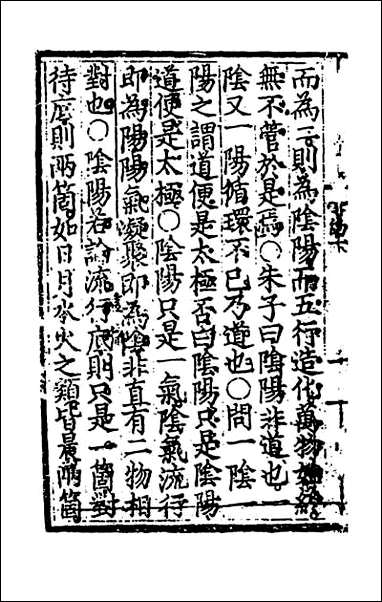 而爲二則爲陰陽而五行造化萬物始終
無不管於是焉○朱子曰陰陽非道也
陰又一陽循環不已乃道也○問一陰
陽之謂道便是太極否曰陰陽只是陰陽
道便是太極○陰陽只是一氣陰氣流行
即為陽陽氣凝聚即為陰非直有二物相
對也○陰陽若論流行底則只是一箇對
待底則兩箇如日月水火之類皆是兩箇